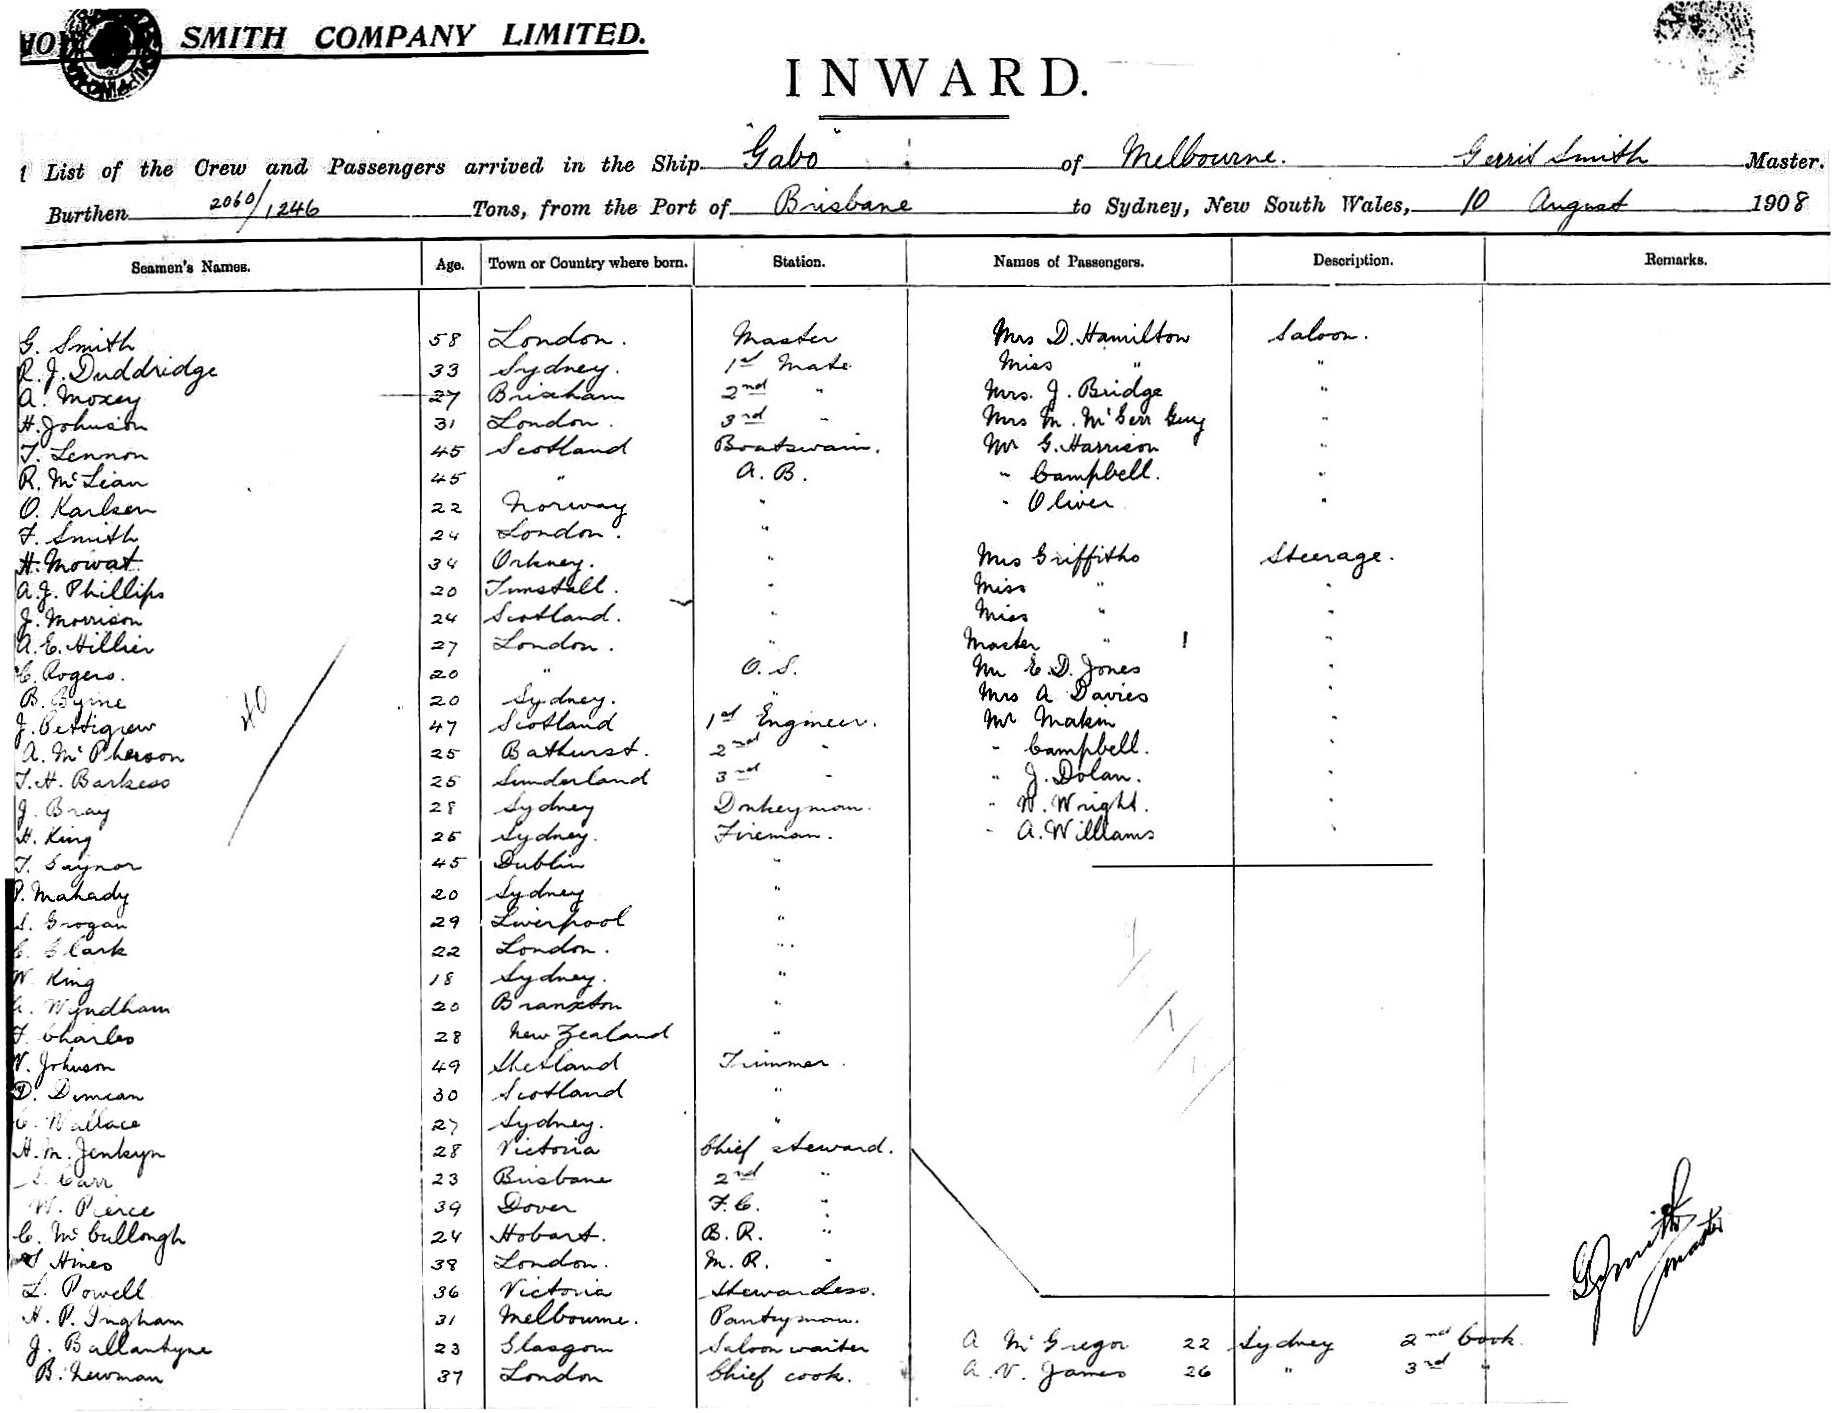 SMITH COMPANY LIMITED.
INWARD.
List of the Crew and Passengers arrived in the Ship "Gabo" of Melbourne. Gerrit Smith Master.
Burthen 2060/1246 Tons, from the Port of Brisbane to Sydney, New South Wales, 10 August 1908
Seamen's Names. Age. Town or Country where born. Station. Names of Passengers. Description. Remarks.
G. Smith 58 London. Master Mrs D. Hamilton Saloon.
R. J. Duddridge 33 Sydney. 1st Mate Miss " "
A. Moxey 27 Brixham 2nd " Mrs. J. Bridge "
H. Johnson 31 London. 3rd " Mrs M. Guy "
T. Lennon 45 Scotland Boatswain. Mr G. Harrison "
R. McLean 45 " A. B. " Campbell. "
O. Karlsen 22 Norway " " Oliver "
F. Smith 24 London. "
H. Mowat 34 Orkney. " Mrs Griffiths Steerage.
A. J. Phillips 20 Tunstall. " Miss " "
J. Morrison 24 Scotland. " Miss " "
A. E. Hillier 27 London. " Master " 1 "
C. Rogers. 20 " O. S. Mr E. D. Jones "
B. Byrne 20 Sydney. " Mrs A Davies "
J. Pettigrew 47 Scotland 1st Engineer. Mr Makin "
A. McPherson 25 Bathurst. 2nd " " Campbell. "
T. H. Barkess 25 Sunderland 3rd " " J. Dolan. "
J. Bray 28 Sydney Donkeyman. " W. Wright. "
H. King 25 Sydney. Fireman. " A. Williams "
40
T. Gaynor 45 Dublin "
P. Mahady 20 Sydney "
S. Grogan 29 Liverpool "
C. Clark 22 London. "
W. King 18 Sydney. "
Wyndham 20 Branxton "
F. Charles 28 New Zealand "
W. Johnson 49 Shetland Trimmer.
D. Duncan 30 Scotland "
C. Wallace 27 Sydney. "
H. M. Jenkyn 28 Victoria Chief Steward.
S. Carr 23 Brisbane 2nd "
W. Pierce 39 Dover F. C. "
C. McCullough 24 Hobart. B. R. "
Hines 38 London. M. R. "
L. Powell 36 Victoria Stewardess.
H. P. Ingham 31 Melbourne. Pantryman.
J. Ballantyne 23 Glasgow Saloon waiter A McGregor 22 Sydney 2nd Cook.
B. Newman 37 London Chief cook. A. V. James 26 " 3rd "
G Smith
Master